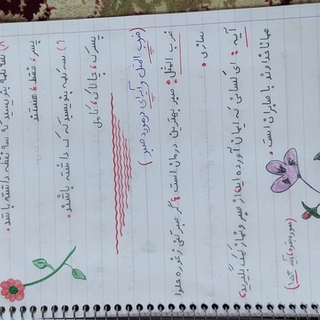 ۸) سه کلمه بنویسید که سه نقطه داشته باشد.
پسر، فقط، هستند
۹) سه کلمه بنویسید که ک داشته باشند.
پسرک، چالاک، کامل
(ضرب المثل و آیه‌ای در مورد صبر)
ضرب المثل: صبر بهترین درمان است؛ گر صبر کنی ز غوره حلوا
سازی.
آیه: ای کسانی که ایمان آورده اید از صبر و نماز کمک بگیرید،
همانا خداوند با صابران است.
(سوره بقره، آیه ۱۵۳)